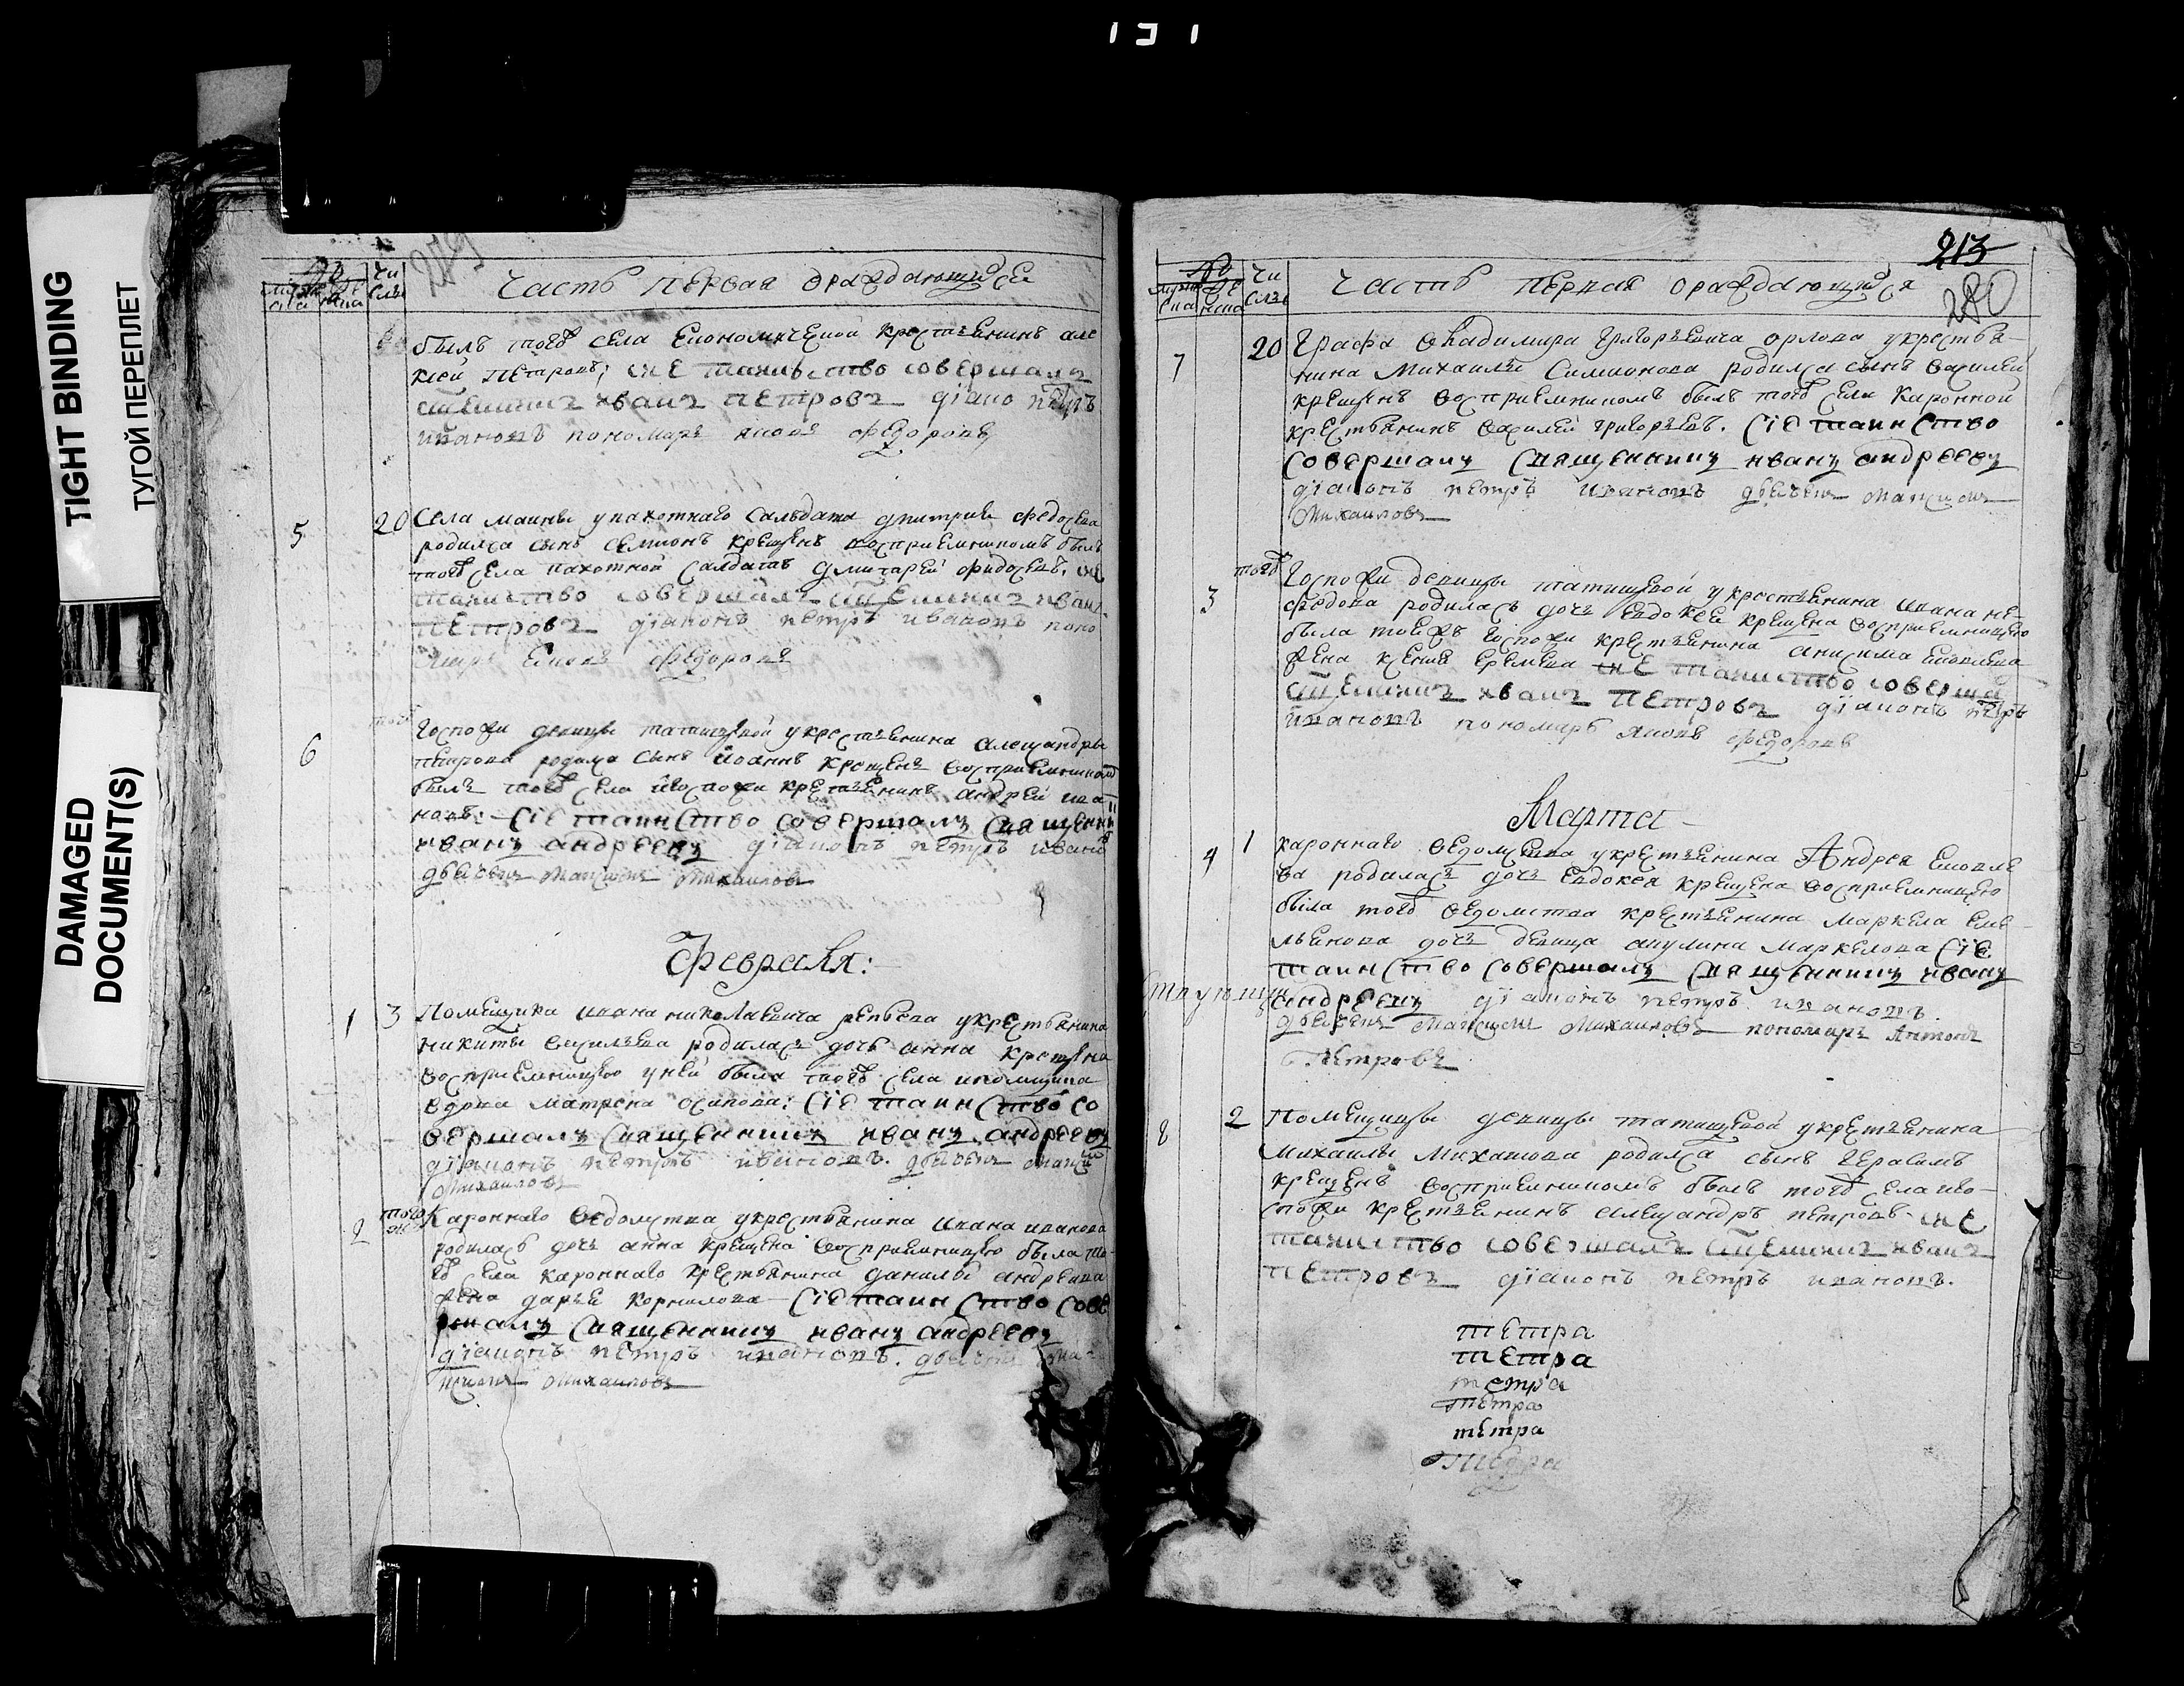 TIGHT BINDING
ТУГОЙ ПЕРЕПЛЕТ
DAMAGED
DOCUMENT(S)
279
Часть первая ораждающихся
Чи
слы
былъ тогоже села економической крестьянинъ але
ксей петровъ; сие таинство совершалъ
священникъ иванъ петровъ діаконъ петръ
ивановъ пономарь яковъ федоровъ
5 20 Села маины у пахотнаго салъдата дмитрия федосева
родился сынъ семионъ крещенъ восприемникомъ былъ
тогоже села пахотной салдатъ дмитарей фидосевъ. сие
таинство совершалъ священникъ иванъ
петровъ діаконъ петръ ивановъ поно
марь яковъ федоровъ
6 тогож Госпожи девицы татищевой у крестьянина александры
петрова родился сынъ иоаннъ крещенъ восприемникомъ
былъ тогоже села и госпожи крестьянинъ андрей ива
новъ: Сіе таинство совершалъ священникъ
иванъ андреевъ діаконъ петръ ивановъ
дьячекъ максимъ михаиловъ
Февраля:
1 3 Помещика ивана николаевича репьева у крестьянина
никиты василъева родиласъ дочь анна крещена
восприемницею у ней была тогоже села и помещика
вдова матрена осипова: Сіе таинство со
вершалъ священникъ иванъ андреевъ
діаконъ петръ ивановъ. дьячекъ максимъ
михаиловъ
2 того ж Кароннаго ведомства у крестьянина ивана иванова
родилась дочь анна крещена восприемницею была то
гож села кароннаго крестьянина данилы андреева
жена дарья корнилова Сіе таинство сове
ршалъ священникъ иванъ андреевъ
діаконъ петръ ивановъ. дьячекъ ма
ксимъ михаиловъ
213
280
Часть первая ораждающихся
Чи
слы
7 20 Графа владимира григоръевича орлова у крестья
нина михаилы симионова родился сынъ василей
крещенъ восприемникомъ былъ тогоже села каронной
крестьянинъ василей григоръевъ. Сіе таинство
совершалъ священникъ иванъ андреевъ
діаконъ петръ ивановъ дьячекъ максимъ
михаиловъ
3 тогож Госпожи девицы татищевой у крестьянина ивана не
федова родилась дочь евдокея крещена восприемницею
была тоейжъ госпожи крестьянина анисима
жена ксения еремева сие таинство соверша
священникъ иванъ петровъ діаконъ петръ
ивановъ пономарь яковъ федоровъ
Марта
4 1 кароннаго ведомства у крестьянина Андрея
ва родиласъ дочь евдокея крещена восприемницею
была тогож ведомства крестьянина маркела еме
льянова дочь девица акулина маркелова Сіе
таинство совершалъ священникъ иванъ
андреевъ діаконъ петръ ивановъ.
дьячекъ максимъ михаиловъ пономарь Антонъ
петровъ
8 2 Помещицы девицы татищевой у крестьянина
михаилы михаилова родился сынъ герасимъ
крещенъ восприемникомъ былъ тогож села и го
спожи крестьянинъ александръ петровъ. сие
таинство совершалъ священникъ иванъ
петровъ діаконъ петръ ивановъ.
петра
петра
петра
петра
петра